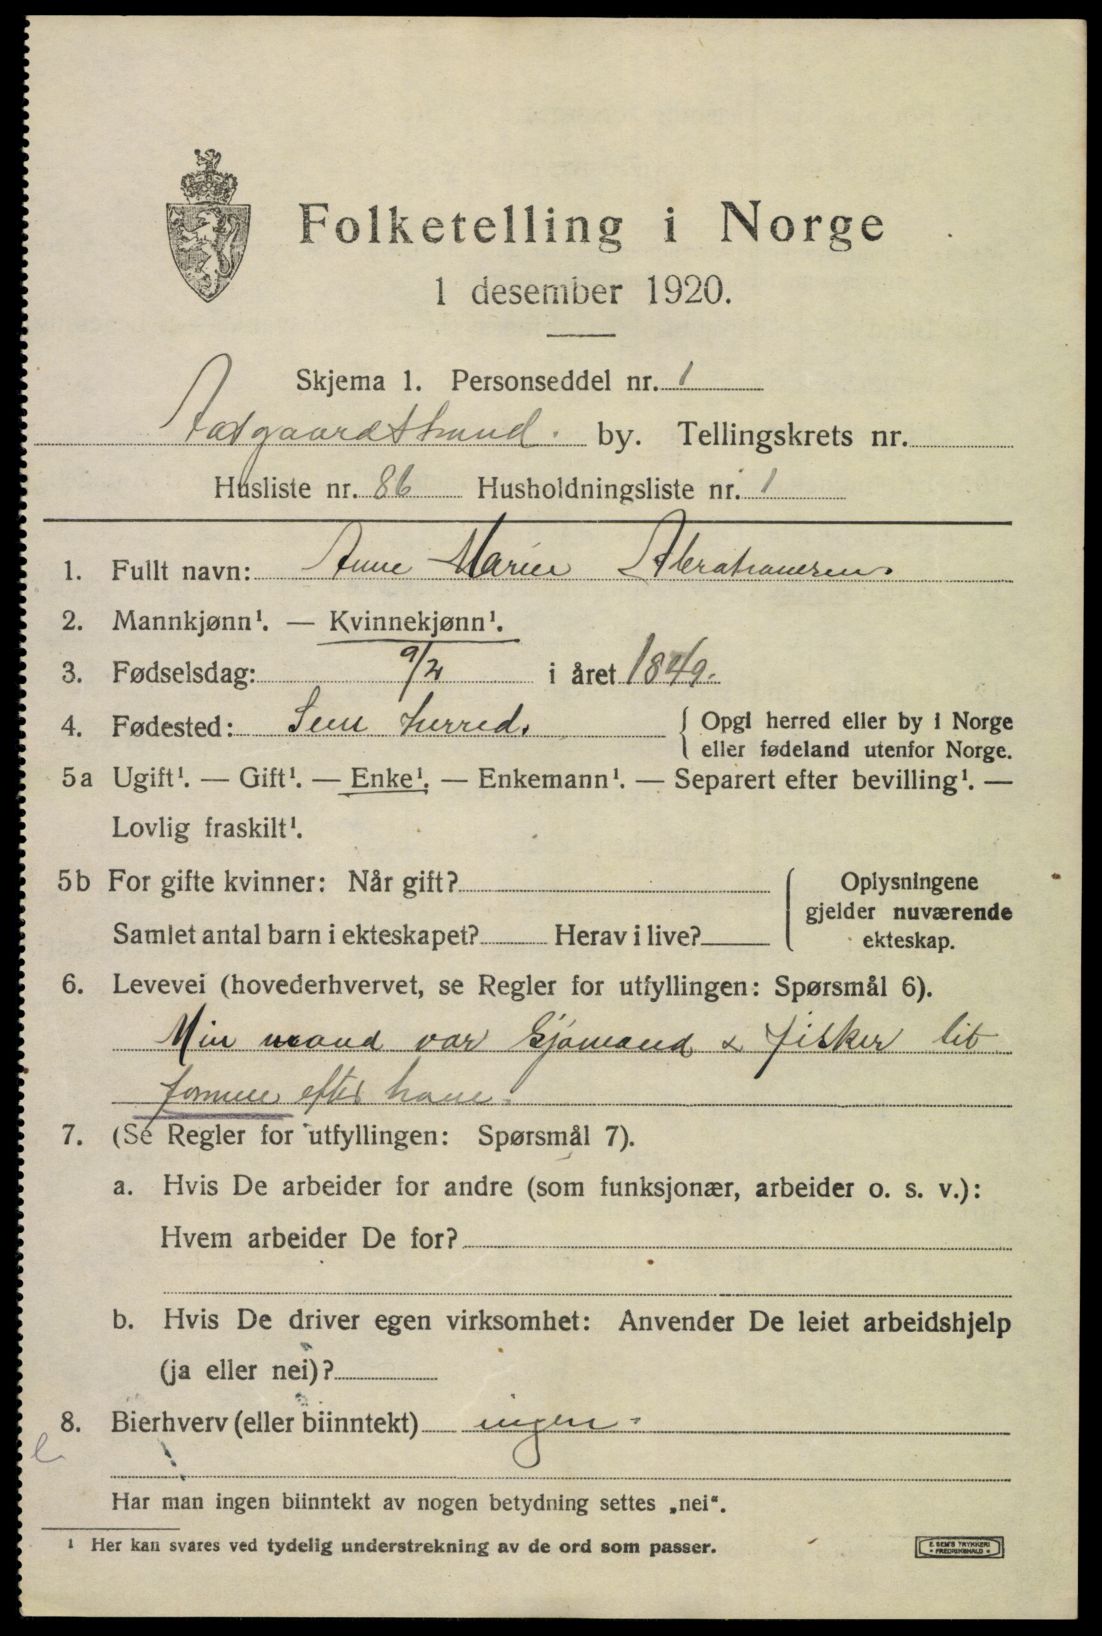 Folketelling i Norge
1 desember 1920.
Skjema 1. Personseddel nr. 1
Aasgaardstrand. by. Tellingskrets nr.
Husliste nr. 86 Husholdningsliste nr. 1
1. Fullt navn: Anne Marie Abrahamsen.
2. Mannkjønn¹. — Kvinnekjønn¹.
3. Fødselsdag: 9/2 i året 1849.
4. Fødested: Sem herred. { Opgi herred eller by i Norge
eller fødeland utenfor Norge.
5a Ugift¹. — Gift¹. — Enke¹. — Enkemann¹. — Separert efter bevilling¹. —
Lovlig fraskilt¹.
5b For gifte kvinner: Når gift? { Oplysningene
gjelder nuværende
Samlet antal barn i ekteskapet? Herav i live? ekteskap.
6. Levevei (hovederhvervet, se Regler for utfyllingen: Spørsmål 6).
Min mand var Sjømand & fisker lit
formue efter ham.
7. (Se Regler for utfyllingen: Spørsmål 7).
a. Hvis De arbeider for andre (som funksjonær, arbeider o. s. v.):
Hvem arbeider De for?
b. Hvis De driver egen virksomhet: Anvender De leiet arbeidshjelp
(ja eller nei)?
8. Bierhverv (eller biinntekt) ingen
Har man ingen biinntekt av nogen betydning settes „nei“.
¹ Her kan svares ved tydelig understrekning av de ord som passer.
E. SEM'S TRYKKERI
FREDRIKSHALD